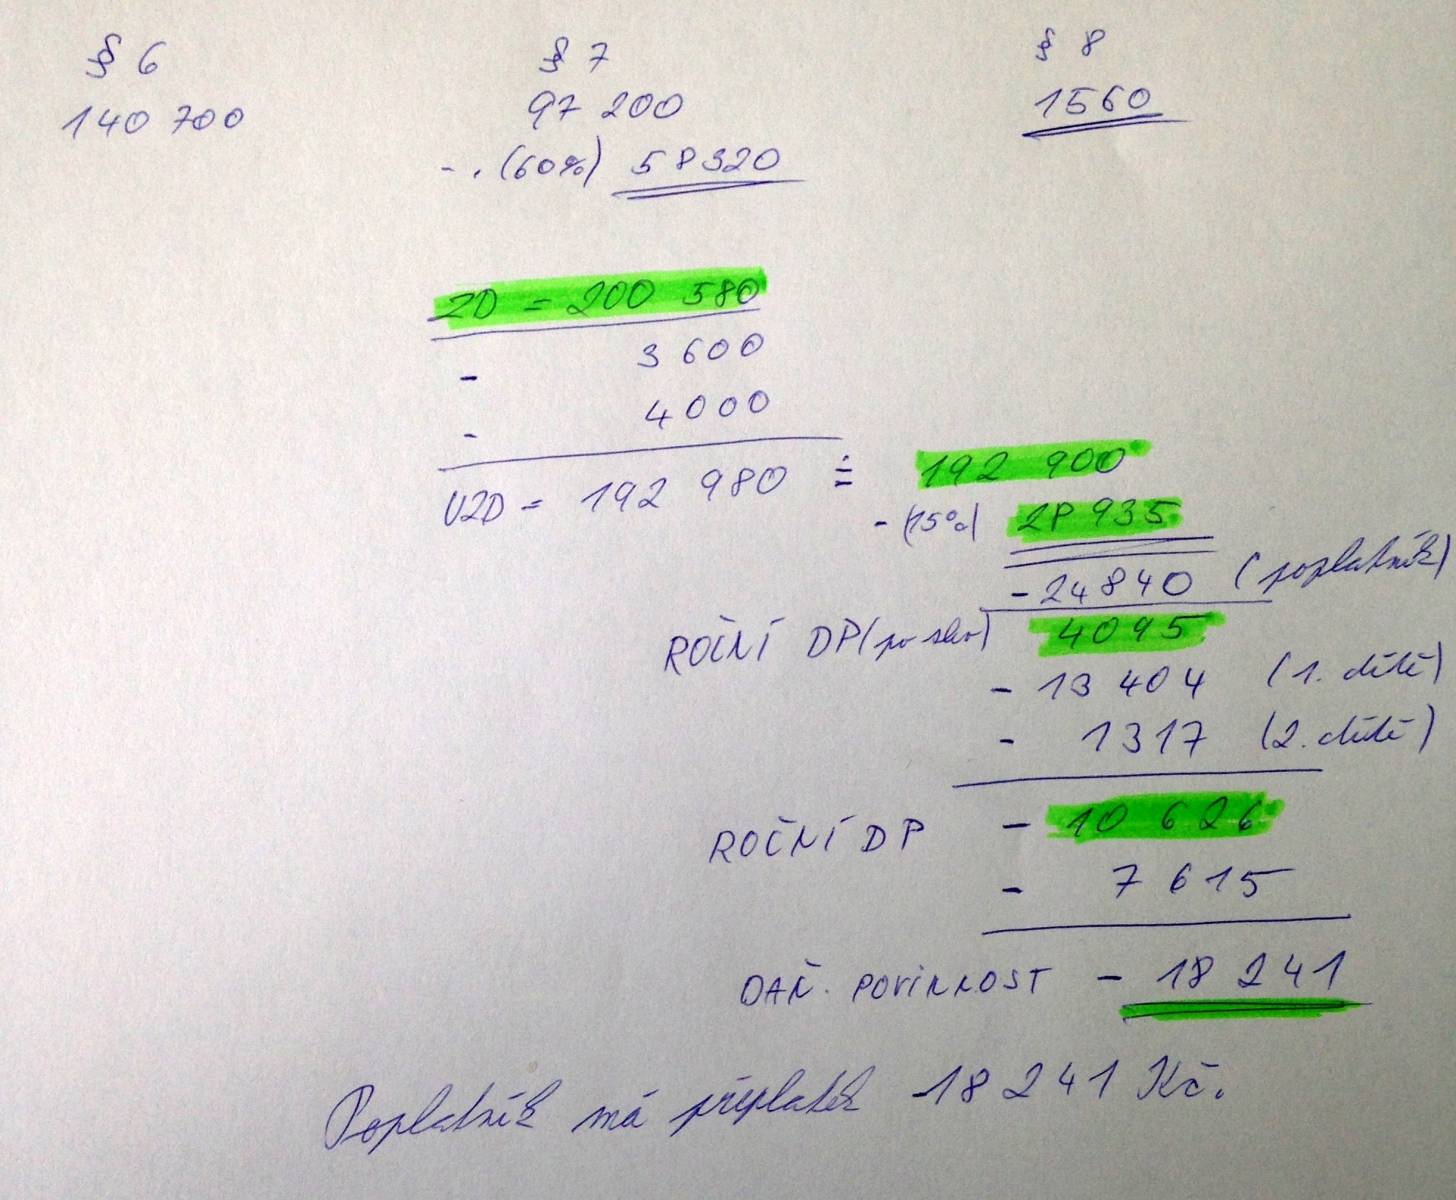 § 6 § 7 § 8
140 700 97 200 1560
- . (60%) 58320
ZD = 200 580
- 3 600
- 4000
UZD = 192 980 ≐ 192 900
- (15%) 28 935
- 24 840 (poplatník)
ROČNÍ DP (po slev) 4095
- 13 404 (1. dítě)
- 1317 (2. dítě)
ROČNÍ DP - 10 626
- 7 615
DAŇ. POVINNOST - 18 241
Poplatník má přeplatek 18 241 Kč.